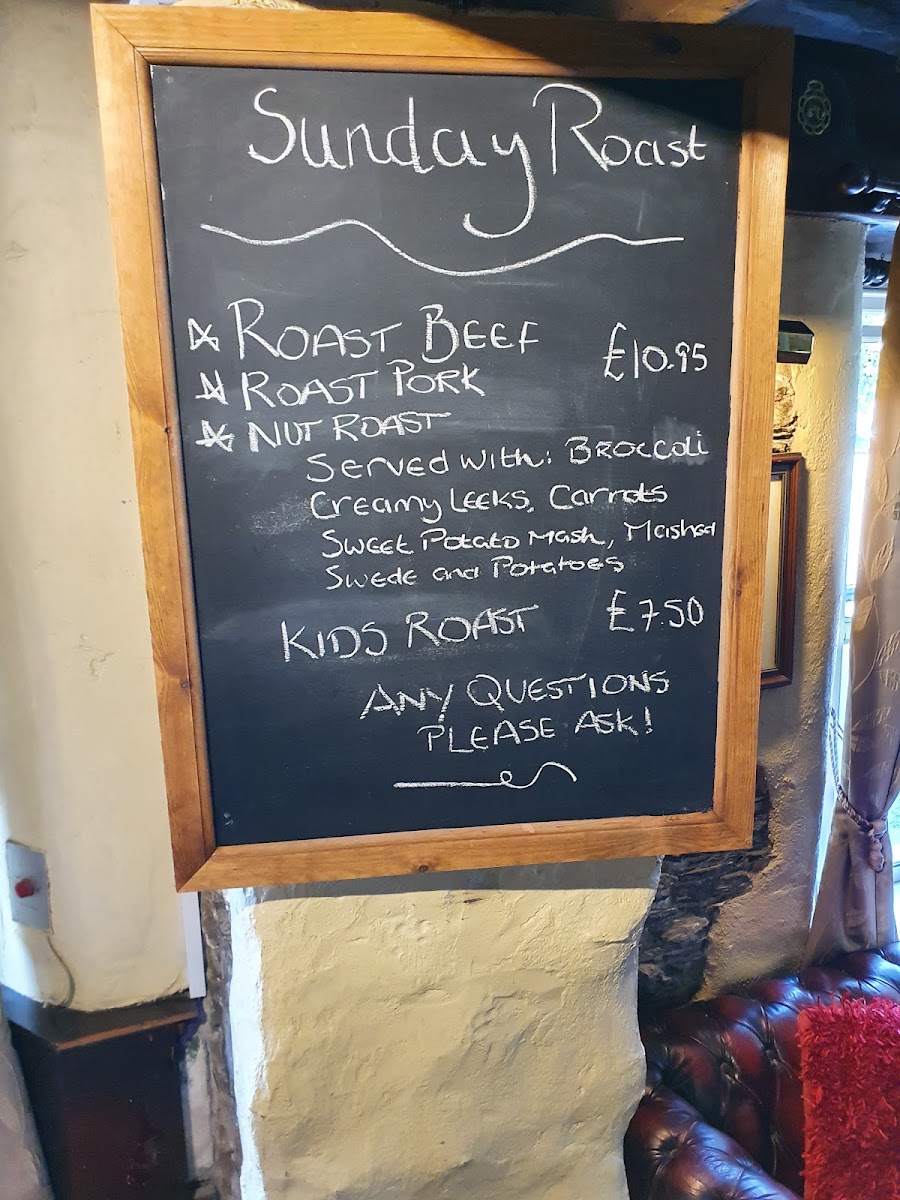 Sunday Roast
ROAST BEEF £10.95
ROAST PORK
NUT ROAST
Served with: Broccoli
Creamy Leeks, Carrots
Sweet Potato Mash, Mashed
Swede and Potatoes
KIDS ROAST £7.50
ANY QUESTIONS
PLEASE ASK!